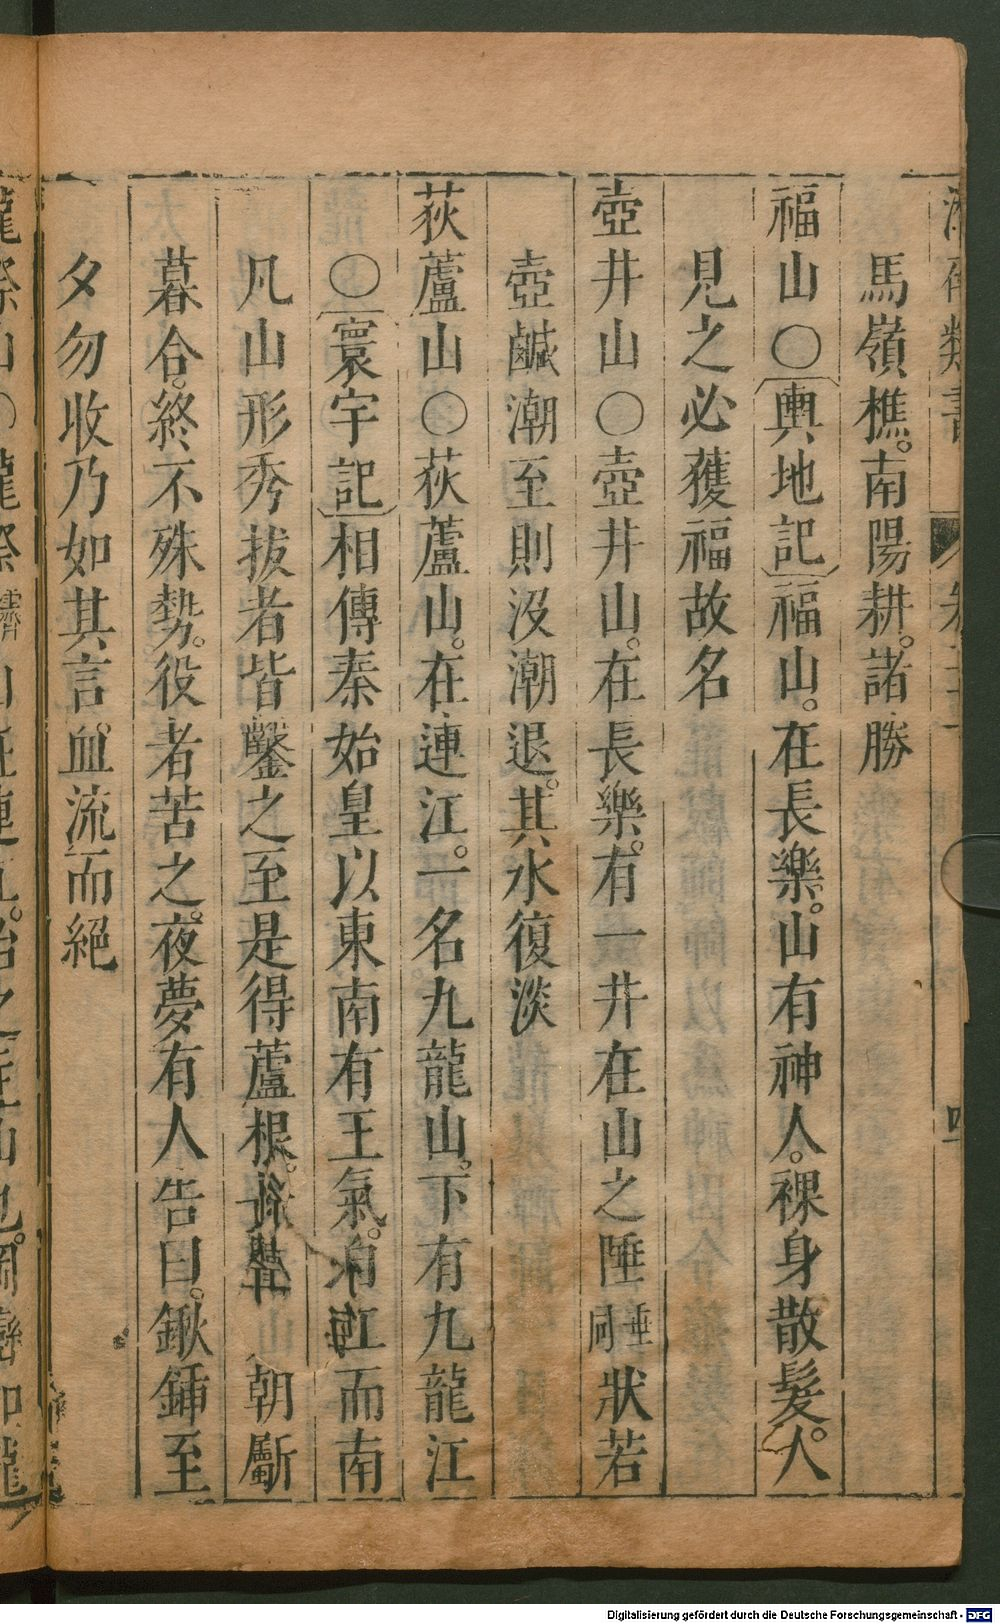 馬嶺樵。南陽耕。諸勝
福山〇〔輿地記〕福山。在長樂。山有神人。裸身散髮。人
見之必獲福故名
壺井山〇壺井山。在長樂。有一井在山之陲垂同狀若
壺鹹潮至則沒潮退。其水復淡
荻蘆山〇荻蘆山。在連江。一名九龍山。下有九龍江
〇〔寰宇記〕相傳秦始皇以東南有王氣。自江而南
凡山形秀拔者皆鑿之至是得蘆根。朝斸
暮合。終不殊勢。役者苦之。夜夢有人告曰。鍬鍤至
夕勿收乃如其言。血流而絕
Digitalisierung gefördert durch die Deutsche Forschungsgemeinschaft - DFG